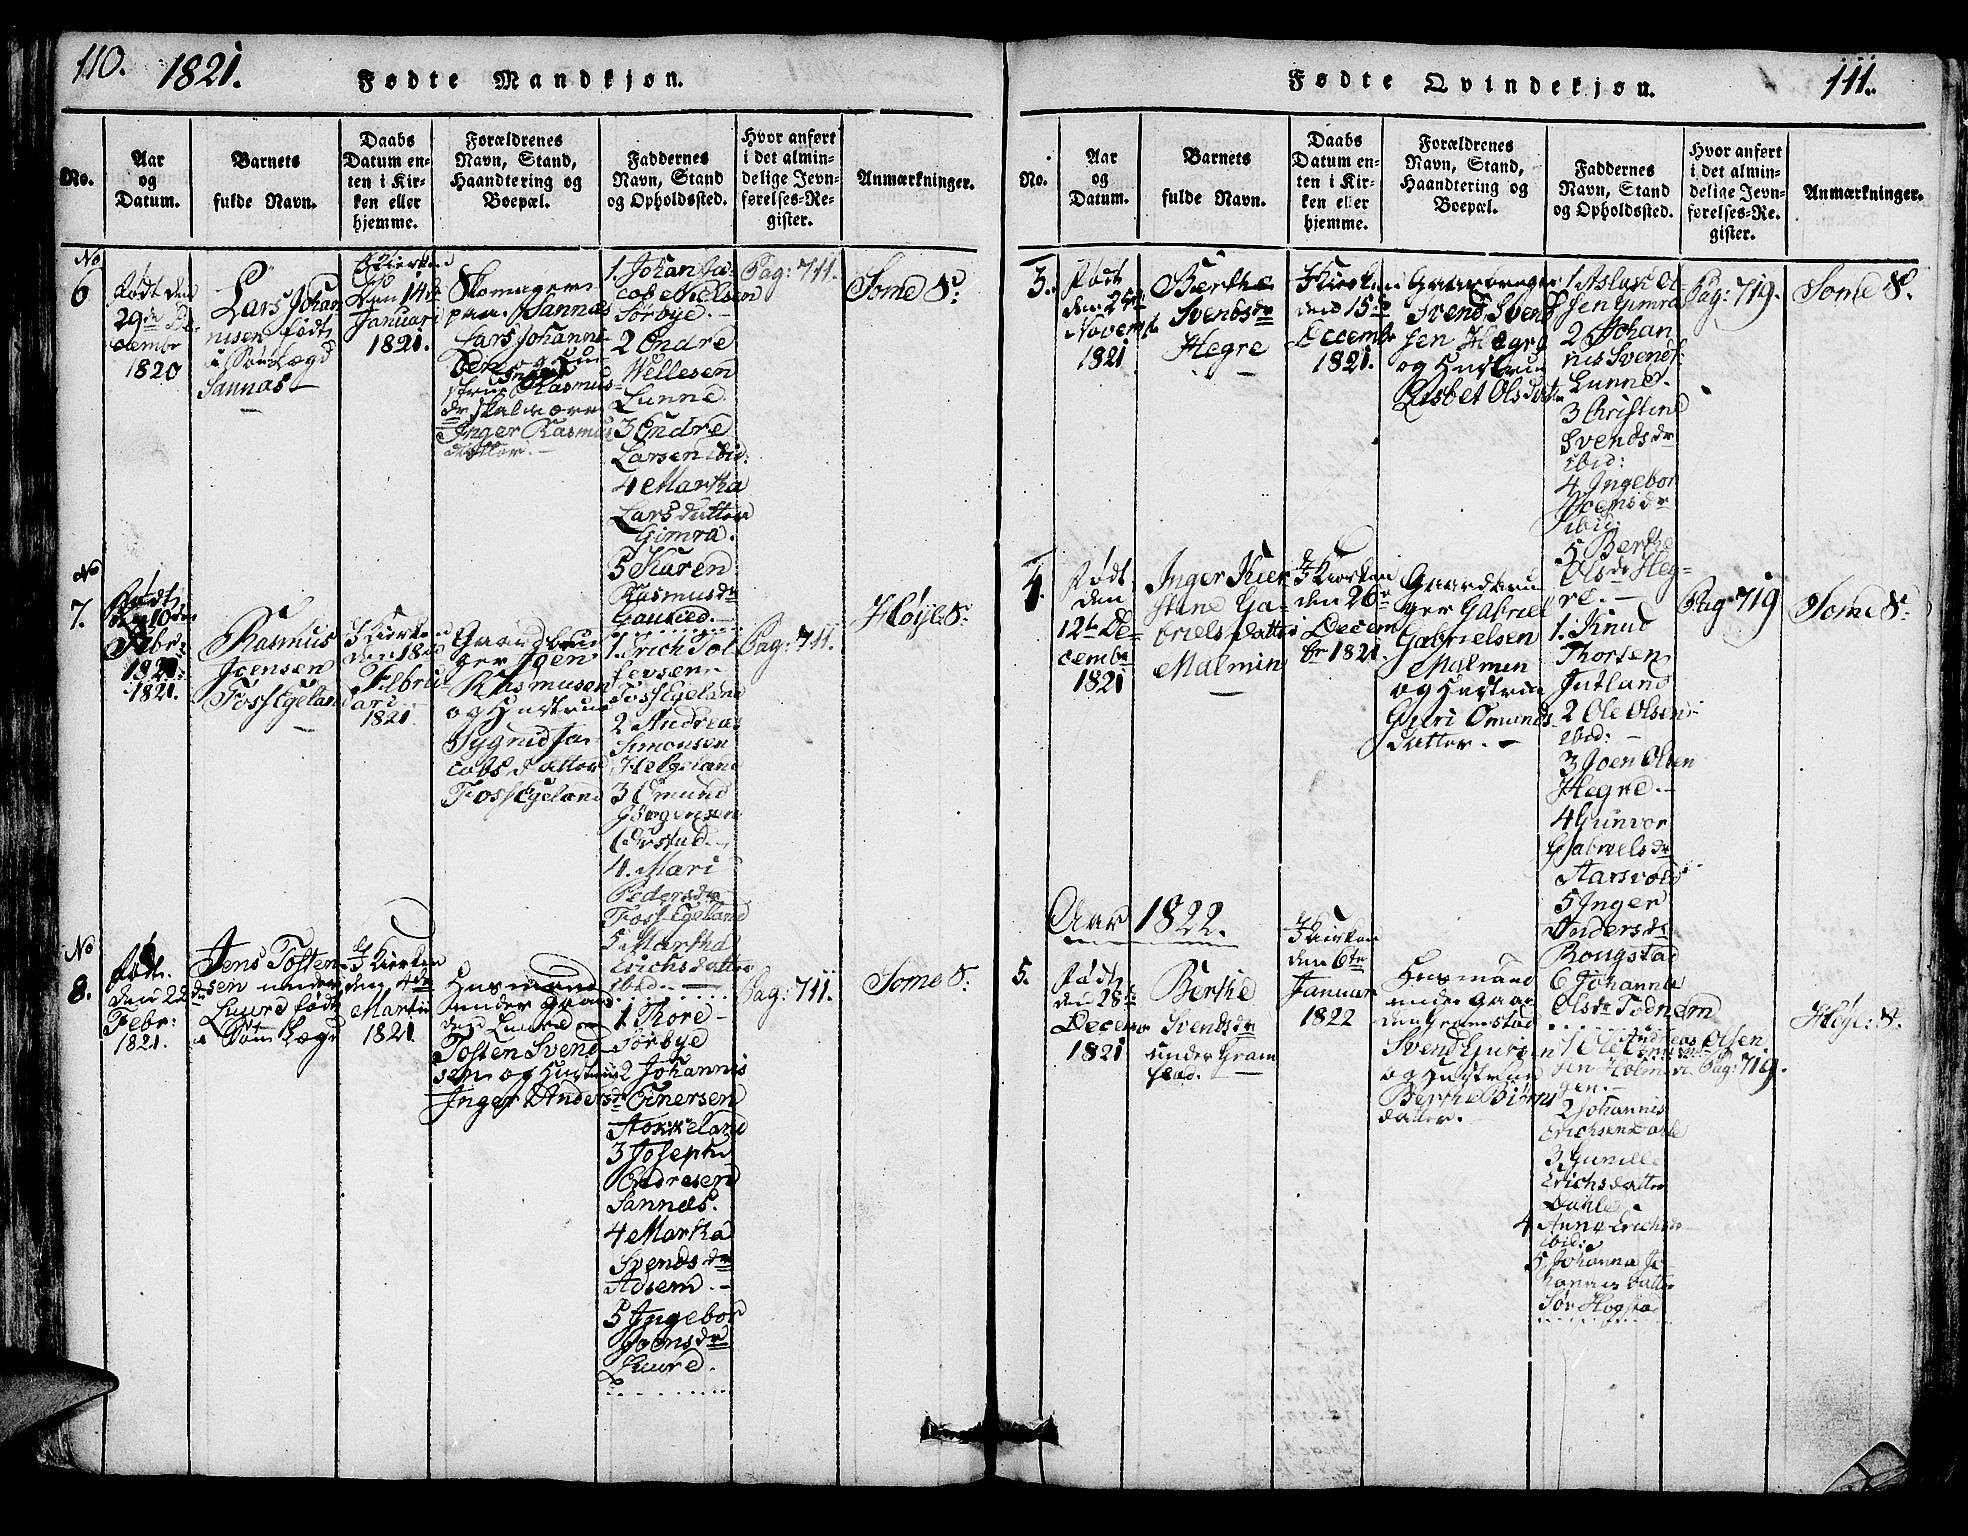 110.
1821.
Fødte Mandkjøn.
No.
Aar
og
Datum.
Barnets
fulde Navn.
Daabs
Datum en-
ten i Kir-
ken eller
hjemme.
Forældrenes
Navn, Stand,
Haandtering og
Boepæl.
Faddernes
Navn, Stand
og Opholdssted.
Hvor anført
i det almin-
delige Jevn-
førelses-Re-
gister.
Anmærkninger.
No
6
Født den
29de De-
cembr
1820
Lars Johan
nisen født
i Røn Lægd
Sannas
I Kierken
den 14de
Januari
1821.
Skomager
paa Sannas
Lars Johanne-
sen og Hu-
strue Rasmus-
dr Skalvære
Inger Rasmus
datter.
1. Johan Ja-
cob Nielsen
Sørbye.
2 Endre
Wellesen
Lunne
3 Endre
Larsen ibid:
4 Martha
Lars dutter
Gimra.
5 Karen
Rasmusdr
Pag: 711.
Some S.
No
7.
Født
den 10de
Febr:
1821.
Rasmus
Joensen
Foss Egeland
I Kierken
den 18de
Februari
1821
Gaardbru
ger Joen
Rasmusen
og Hustrue
Sygnid Ja-
cobs datter
Foss Egeland
1. Erich Tol
levsen
Foss Egeland
2 Andreas
Simonsen
Helgeland
3 Omund
Jørgensen
4. Mari
Pedersdr
Foss-Egeland
5 Martha
Erichsdatter
ibid.
Pag: 711.
Høye S.
No
8.
Født
den 22de
Febr:
1821.
Jens Tosten-
sen under
Luure født
i Røn Lægd
I Kierken
den 4de
Martii
1821
Husmand
under Gaar
den Luure
Tosten Svend
sen og Hustrue
Inger Andersdr
1 Thore
Sørbye
2 Johannis
Einersen
Aokkeland
3 Joseph
Endresen
Sannes.
4 Martha
Svendsdr
Adsem.
5 Ingebor
Joensdr
Luure.
Pag: 711.
Some S.
111.
Fødte Qvindekjøn.
No.
Aar
og
Datum.
Barnets
fulde Navn.
Daabs
Datum en-
ten i Kir-
ken eller
hjemme.
Forældrenes
Navn, Stand,
Haandtering og
Boepæl.
Faddernes
Navn, Stand
og Opholdssted.
Hvor anført
i det almin-
delige Jevn-
førelses-Re-
gister.
Anmærkninger.
3.
Født
den 24de
Novemb
1821
Berthe
Svendsdr
Hegre
I Kierken
den 15de
Decemb
1821.
Gaardbruger
Svend Svend
sen Hegre
og Hustrue
Lisbet Olsdatter
1 Aslach Ol
sen Gimra
2 Johan
nis Svends
Lunne.
3 Christine
Svendsdr
ibid:
4 Ingebor
Joensdr
ibid:
5 Berthe
Olsdr Heg-
re.
Pag: 719.
Some S.
4.
Født
den
12te De-
cembr
1821
Inger Kier
stine Ga-
briels datter
Malmin
I Kierken
den 26de
Decem
br 1821.
Gaardbru
ger Gabriel
Gabrielsen
Malmen
og Hustrue
Guri Omunds-
datter.
1. Knud
Thorsen
Jutland
2 Ole Olsen
ibid:
3 Joen Olsen
Hegre.
4 Gunvor
Gabrielsdr
Aarsvold
5 Inger
Andersdr
Rougstad
6 Johanna
Olsdr Todnem
Pag 719
Some S.
Aar 1822.
5.
Født
den 28de
Decemb
1821
Berthe
Svendsdr
under Gram
stad.
I Kierken
den 6te
Januar
1822
Husmand
under Gaar
den Gramstad
Svend Guri
og Hustrue
Berthe Biørns
datter.
Andreas Olsen
1 Ole
2 Johannis
Erichsen Dahle
3 Gunille
Erichsdatter
Dahle.
4 Anna Erichs
ibid:
5 Johanna Jo
hannis datter
Sør Hogsta
Pag: 719.
Høye: S.